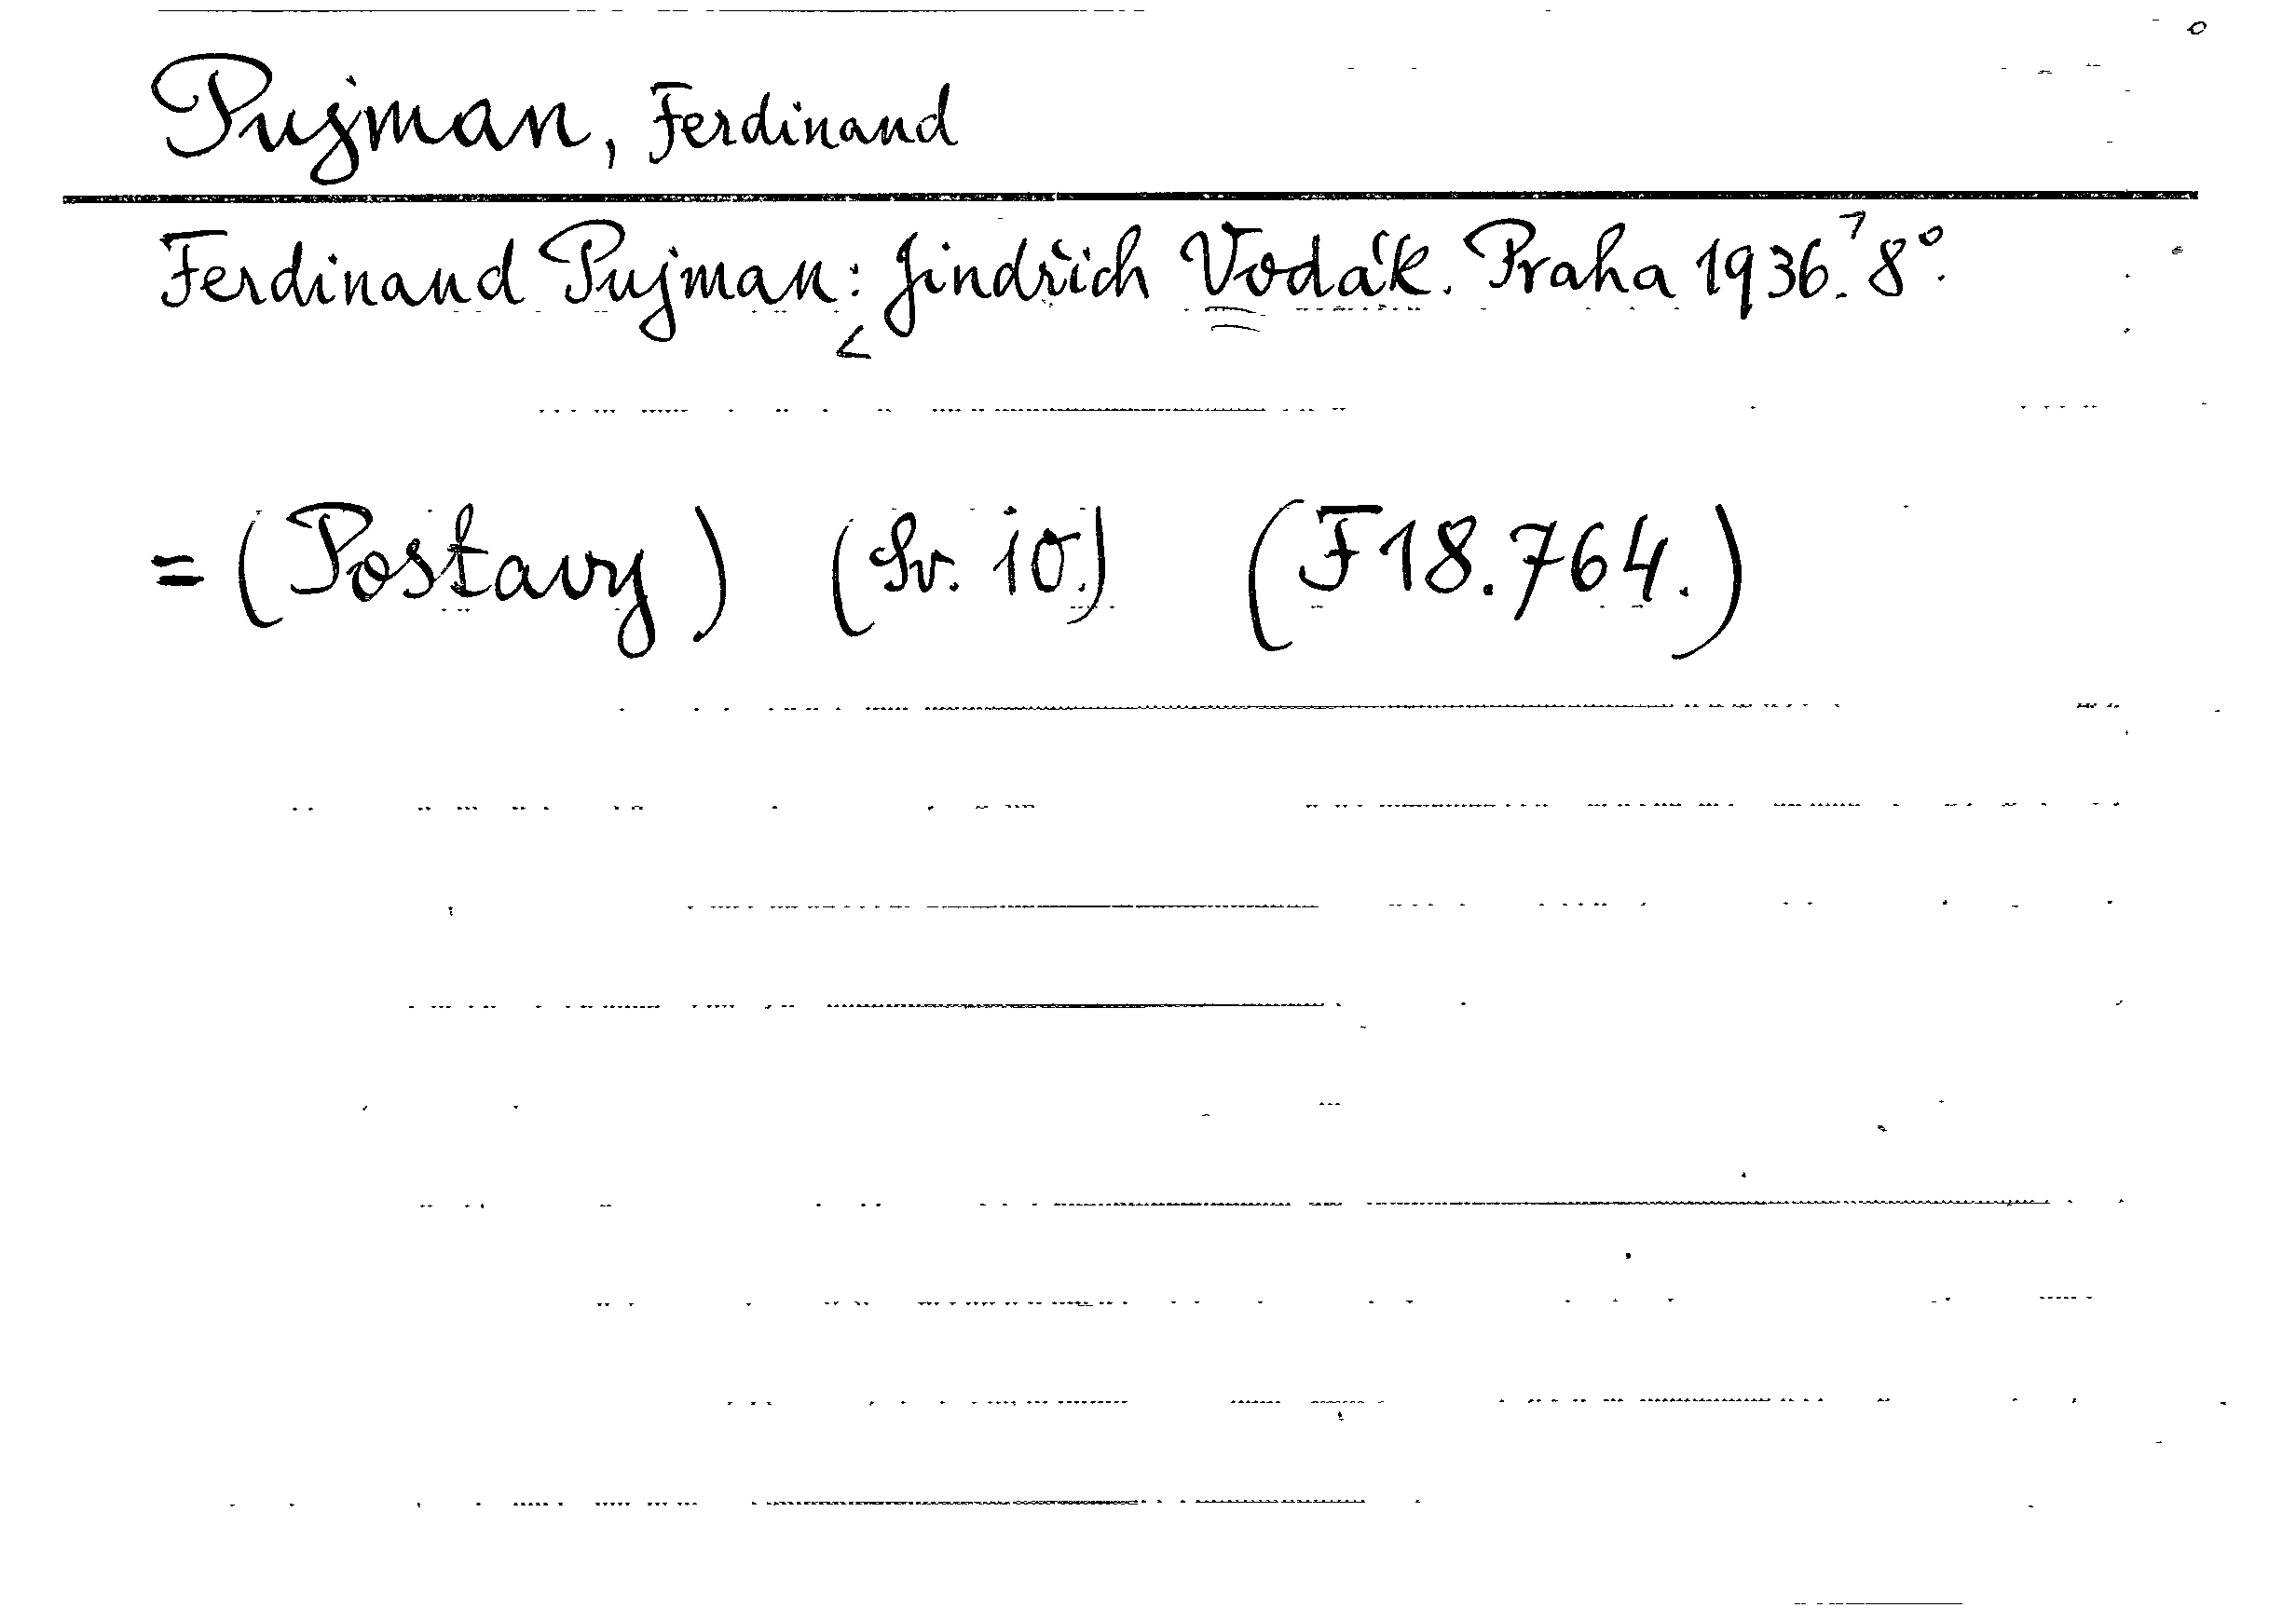 Pujman, Ferdinand
Ferdinand Pujman: Jindřich Vodák. Praha 1936. 8°.
= (Postavy) (Sv. 10.) (F 18.764.)